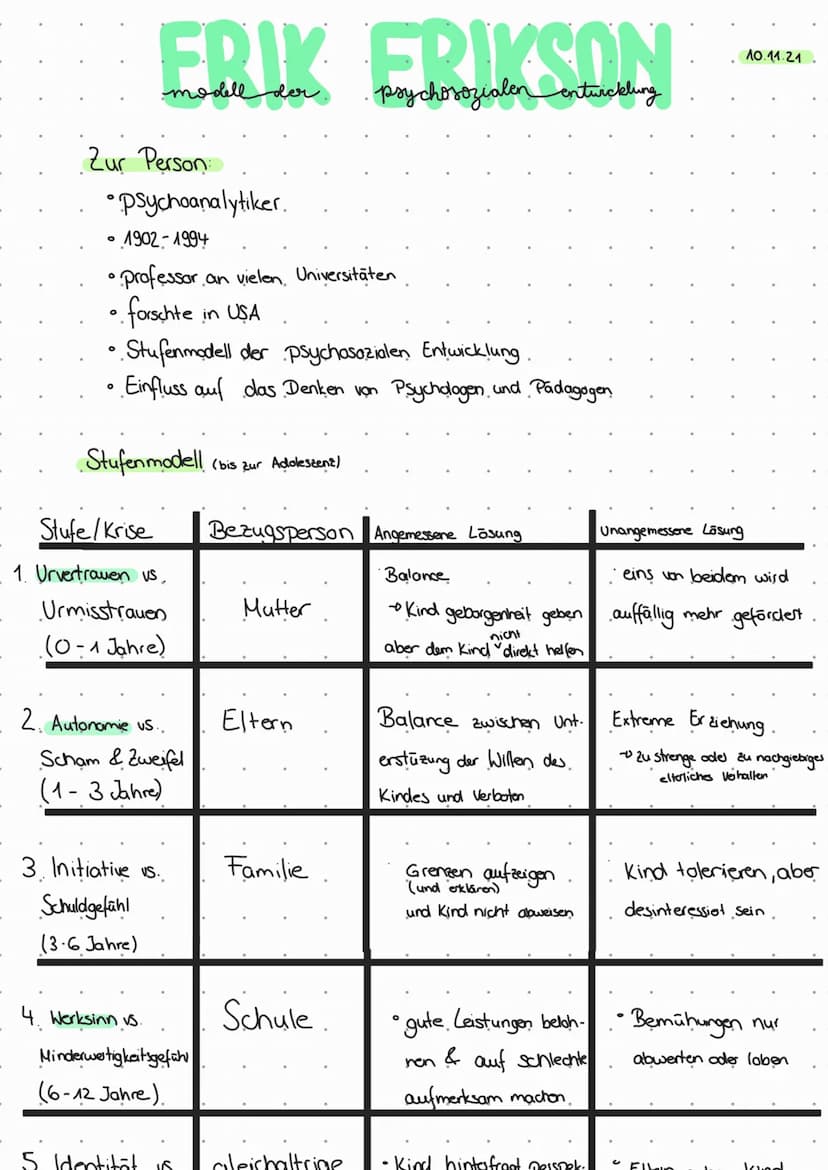 ERIK ERIKSON
modell der psychosozialen entwicklung
10.11.21
Zur Person:
• psychoanalytiker
• 1902-1994
• professor an vielen Universitäten
• forschte in USA
• Stufenmodell der psychosozialen Entwicklung
• Einfluss auf das Denken von Psychologen und Pädagogen
Stufenmodell (bis zur Adoleszenz)
Stufe/Krise
Bezugsperson
Angemessene Lösung
Unangemessene Lösung
1. Urvertrauen vs.
Urmisstrauen
(0-1 Jahre)
Mutter
Balance
→ Kind geborgenheit geben
aber dem Kind nicht direkt helfen
eins von beidem wird
auffällig mehr gefördert
2. Autonomie vs.
Scham & Zweifel
(1-3 Jahre)
Eltern
Balance zwischen Unt-
erstüzung der Willen des
Kindes und Verboten
Extreme Erziehung
→ zu strenge oder zu nachgiebiges
elterliches Verhalten
3. Initiative vs.
Schuldgefühl
(3-6 Jahre)
Familie
Grenzen aufzeigen
(und erklären)
und Kind nicht abweisen
Kind tolerieren, aber
desinteressiert sein
4. Werksinn vs.
Minderwertigkeitsgefühl
(6-12 Jahre)
Schule
• gute Leistungen beloh-
nen & auf schlechte
aufmerksam machen
• Bemühungen nur
abwerten oder loben
5. Identität vs
gleichaltrige
• Kind hinterfragt